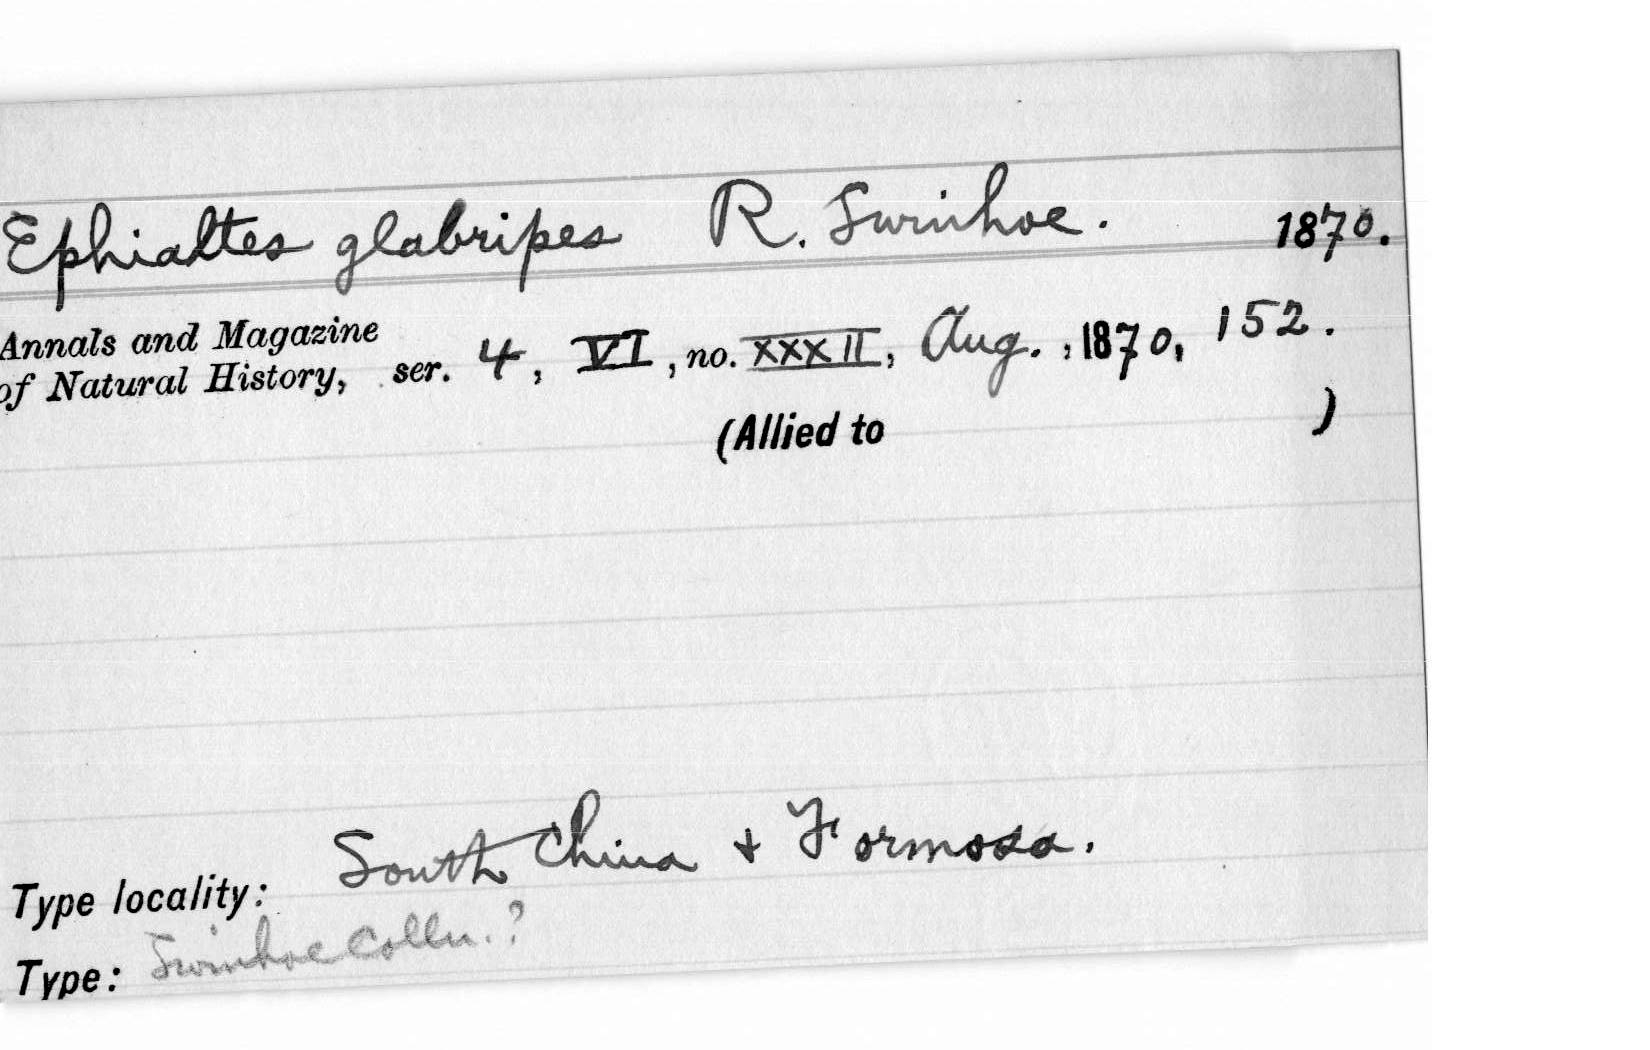 Ephialtes glabripes R. Swinhoe. 1870.
Annals and Magazine
of Natural History, ser. 4, VI, no. XXXII, Aug., 1870, 152.
(Allied to )
Type locality: South China + Formosa.
Type: Swinhoe Colln.?